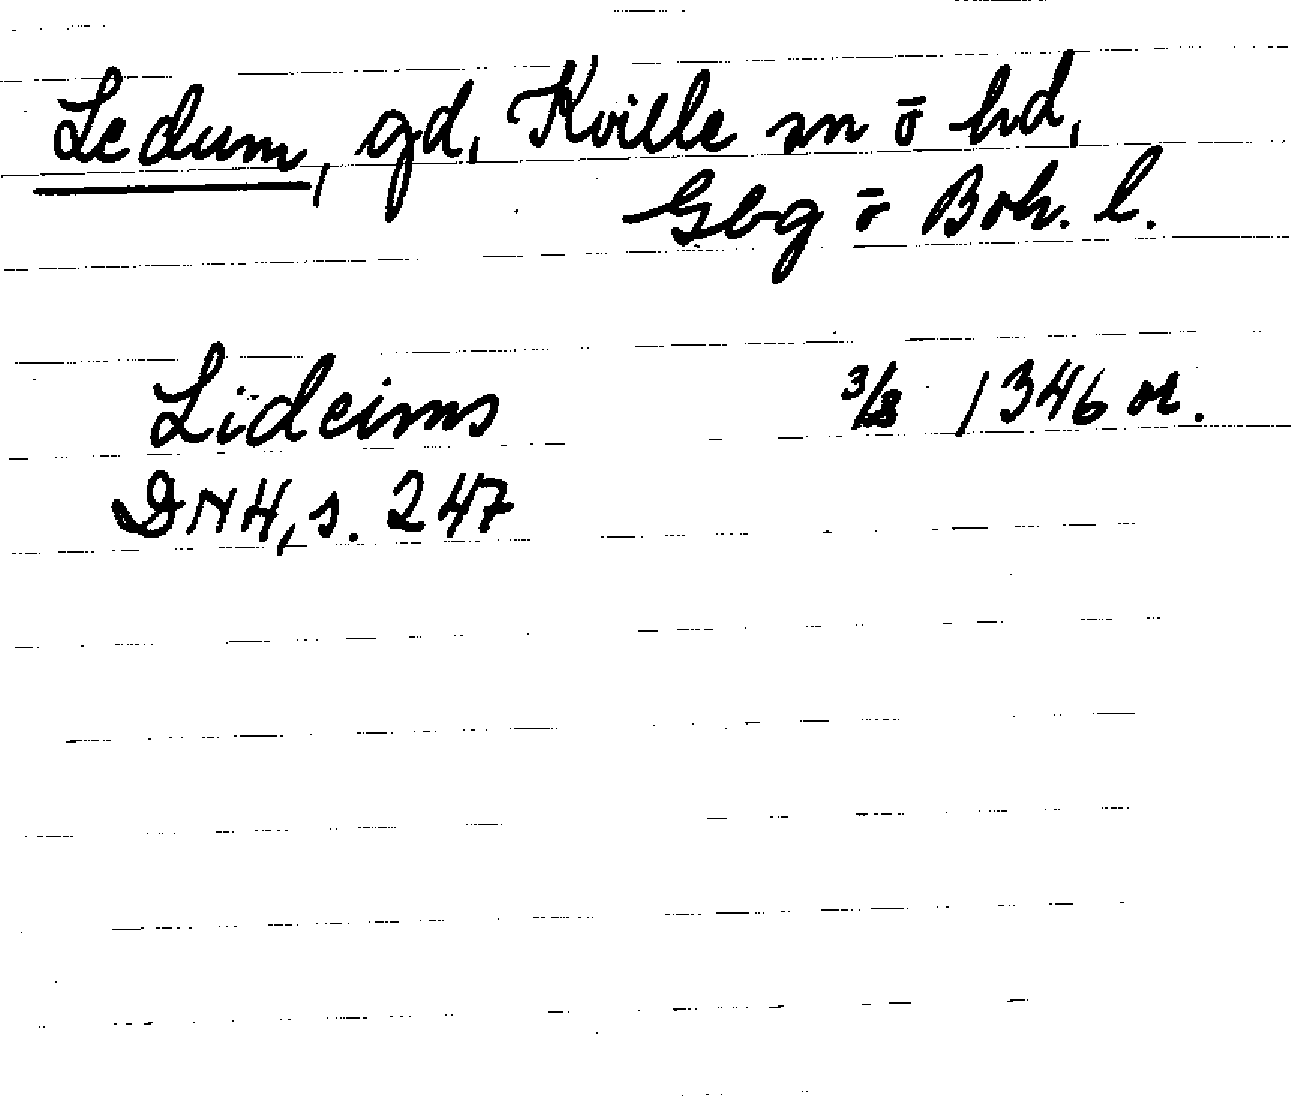 Ledum, gd, Kville sn o hd,
Gbg o Boh. l.
Lideims 3/8 1346 or.
DN4, s. 247